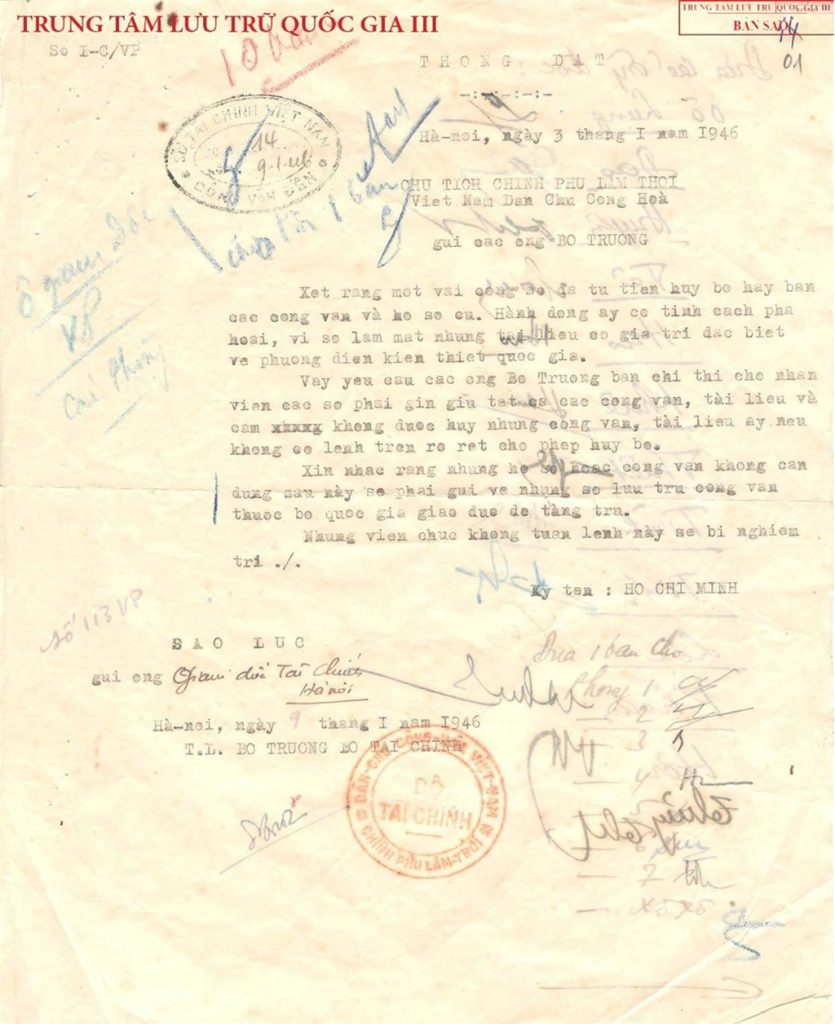 TRUNG TÂM LƯU TRỮ QUỐC GIA III
TRUNG TÂM LƯU TRỮ QUỐC GIA III
BẢN SAO
So I-C/VP
01
T H O N G   D A T
-:-:-:-:-
SỞ TÀI CHÍNH VIỆT NAM
14
9-1-46
CÔNG VĂN ĐẾN
Hà-noi, ngày 3 thang I nam 1946
CHU TICH CHINH PHU LAM THOI
Viet Nam Dan Chu Cong Hoà
gui cac ong BO TRUONG
Xet rang mot vai cong so da tu tien huy bo hay ban
cac cong van và ho so cu. Hành dong ay co tinh cach pha
hoai, vi se lam mat nhung tai lieu co gia tri dac biet
ve phuong dien kien thiet quoc gia.
Vay yeu cau cac ong Bo Truong ban chi thi cho nhan
vien cac so phai gin giu tat ca cac cong van, tài lieu và
cam xhxxg khong duoc huy nhung cong van, tài lieu ay neu
khong co lenh tren ro ret cho phep huy bo.
Xin nhac rang nhung ho so hoac cong van khong can
dung sau này se phai gui ve nhung so luu tru cong van
thuoc bo quoc gia giao duc de tàng tru.
Nhung vien chuc khong tuan lenh này se bi nghiem
tri ./.
Ky ten : HO CHI MINH
Số 113 VP
S A O   L U C
gui ong Giam đốc Tài Chính
Hà nội
Hà-noi, ngày 9 thang I nam 1946
T.L. BO TRUONG BO TAI CHINH
DÂN-CHỦ CỘNG-HÒA VIỆT-NAM
BỘ
TÀI CHÍNH
CHÍNH PHỦ LÂM-THỜI
Đưa 1 bản cho
phòng 1
2
3
4
7